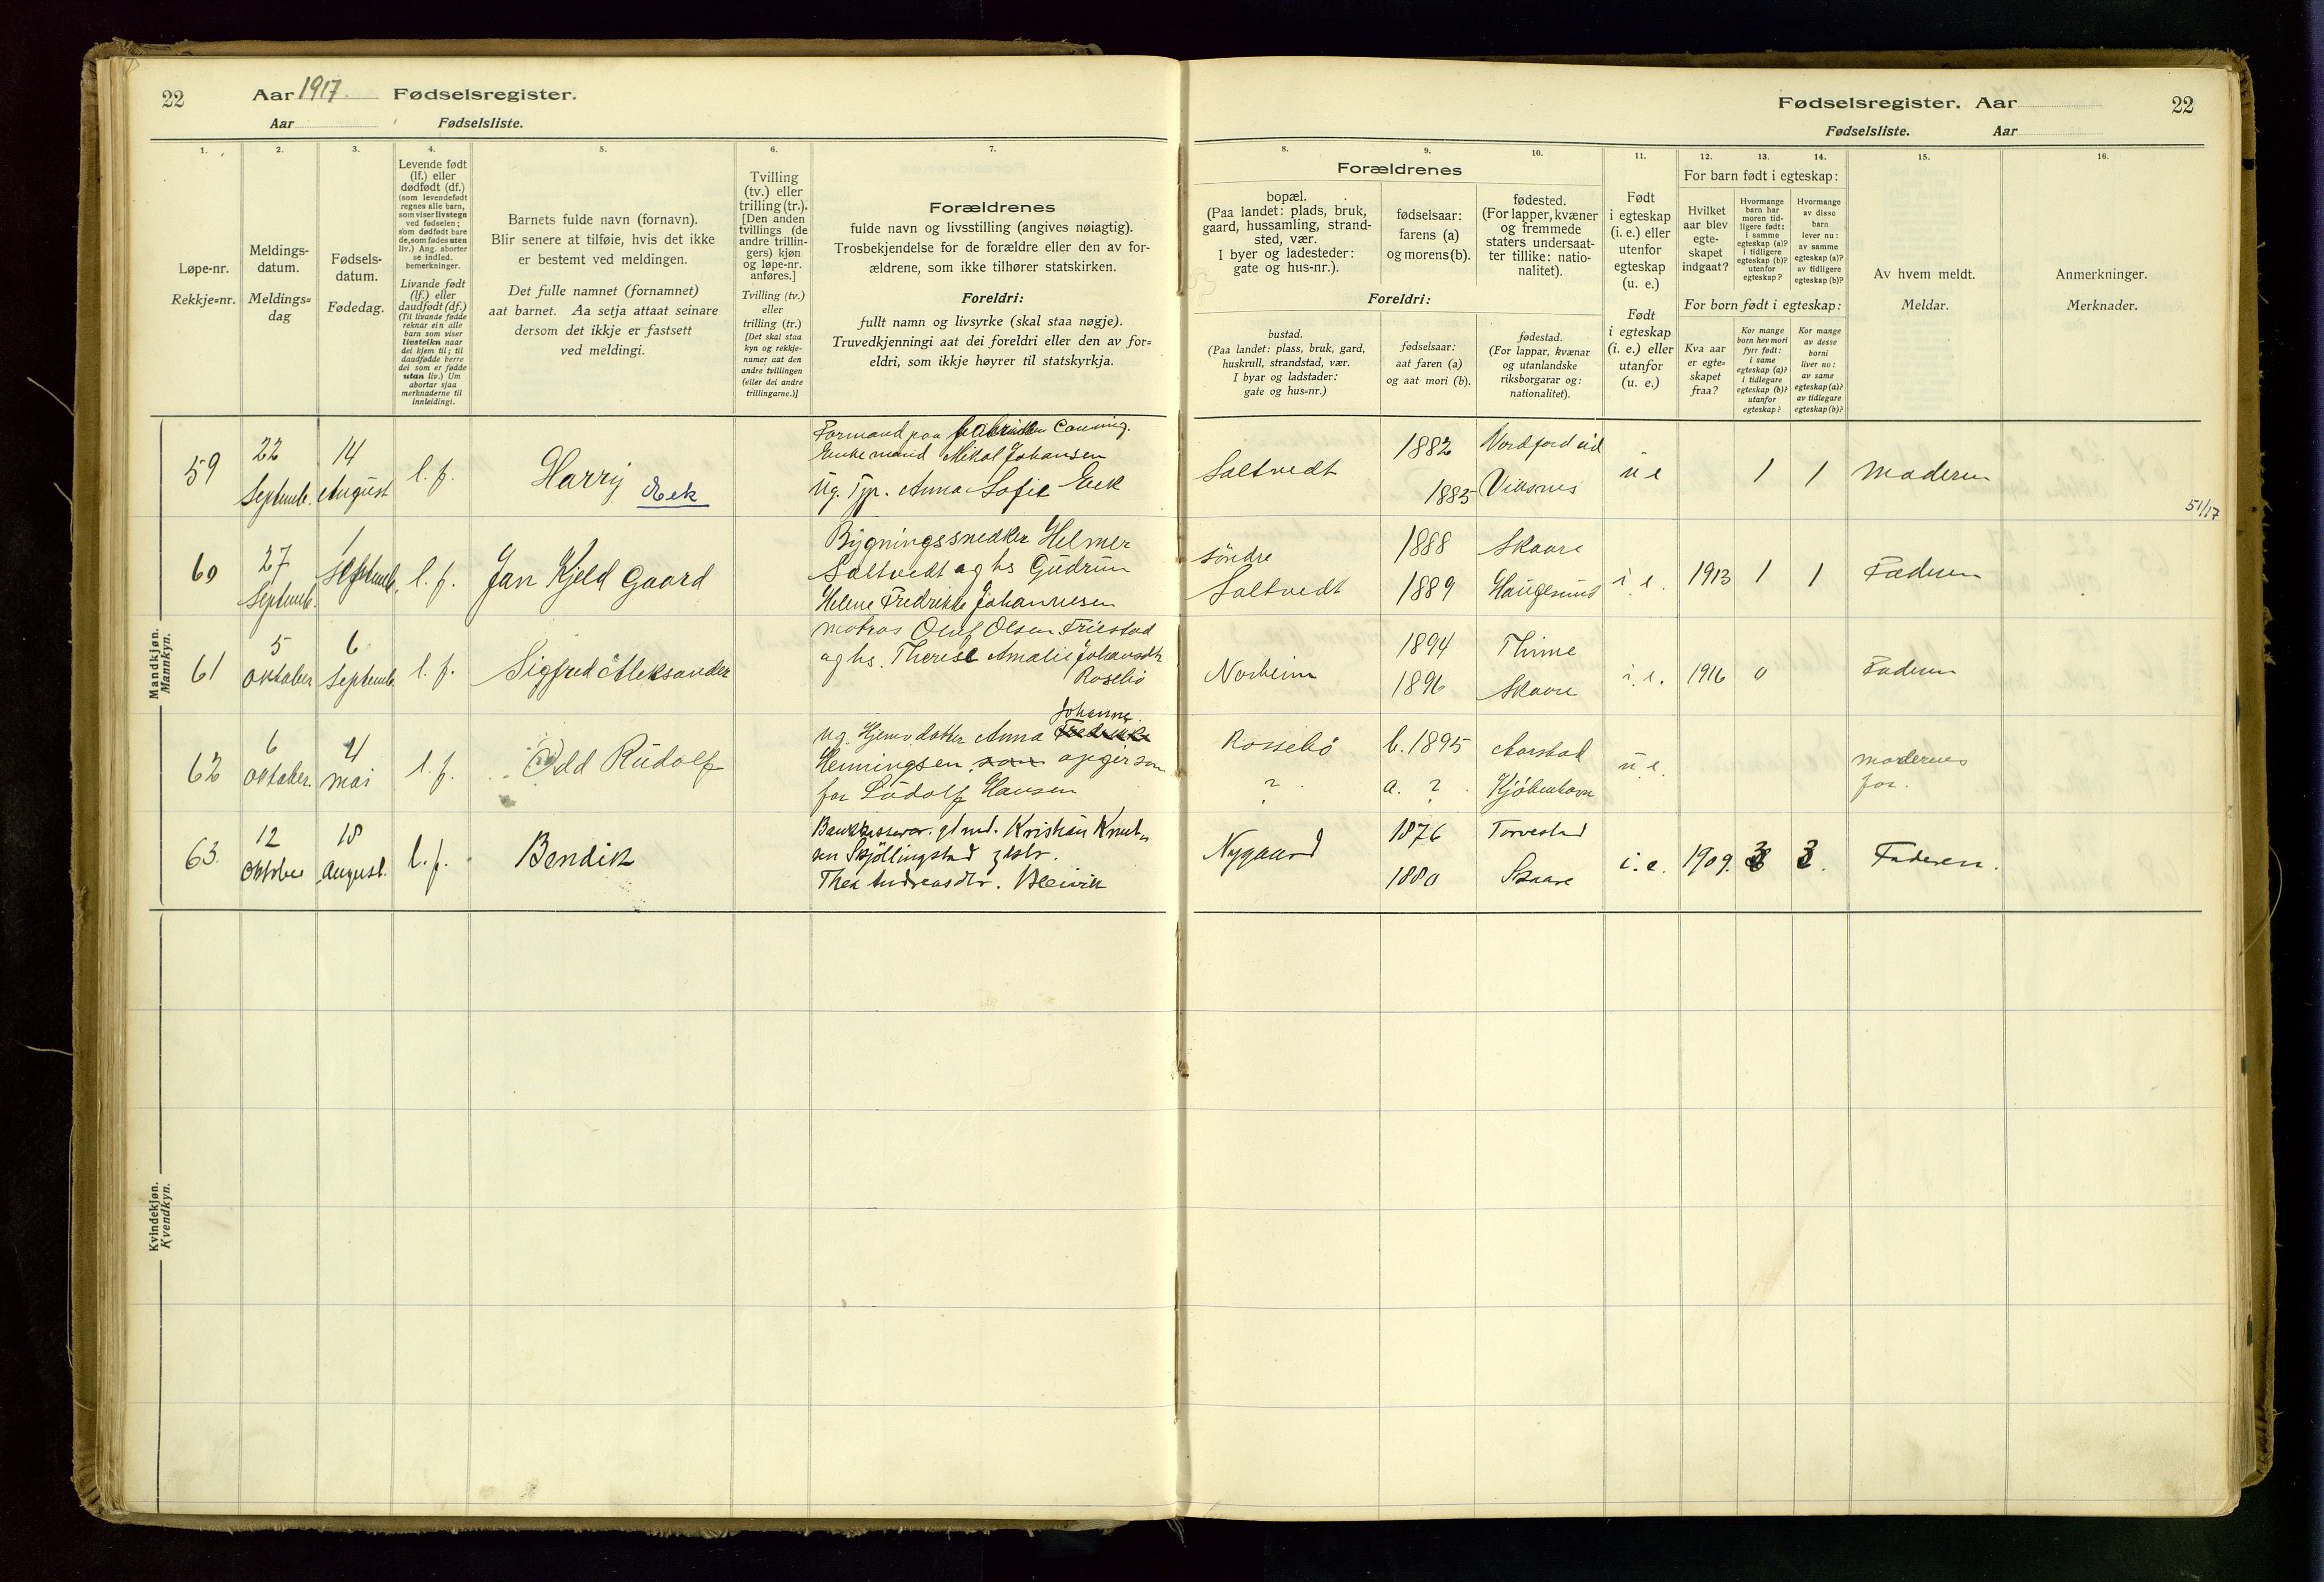 22 Aar 1917. Fødselsregister.
Aar Fødselsliste.
1.
Løpe-nr.
Rekkje=nr.
2.
Meldings-
datum.
Meldings=
dag
3.
Fødsels-
datum.
Fødedag.
4.
Levende født
(lf.) eller
dødfødt (df.)
(som levendefødt
regnes alle barn,
som viser livstegn
ved fødselen;
som dødfødt bare
de, som fødes uten
liv.) Ang. aborter
se indled.
bemerkninger.
Livande født
(lf.) eller
daudfødt (df.)
(Til livande fødde
reknar ein alle
barn som viser
livsteikn naar
dei kjem til; til
daudfødde berre
dei som er fødde
utan liv.) Um
abortar sjaa
merknaderne til
innleidingi.
5.
Barnets fulde navn (fornavn).
Blir senere at tilføie, hvis det ikke
er bestemt ved meldingen.
Det fulle namnet (fornamnet)
aat barnet. Aa setja attaat seinare
dersom det ikkje er fastsett
ved meldingi.
6.
Tvilling
(tv.) eller
trilling (tr.).
[Den anden
tvillings (de
andre trillin-
gers) kjøn
og løpe-nr.
anføres.]
Tvilling (tv.)
eller
trilling (tr.)
[Det skal staa
kyn og rekkje-
numer aat den
andre tvillingen
(eller dei andre
trillingarne.)]
7.
Forældrenes
fulde navn og livsstilling (angives nøiagtig).
Trosbekjendelse for de forældre eller den av for-
ældrene, som ikke tilhører statskirken.
Foreldri:
fullt namn og livsyrke (skal staa nøgje).
Truvedkjenningi aat dei foreldri eller den av for=
eldri, som ikkje høyrer til statskyrkja.
Fødselsregister. Aar 22
Fødselsliste. Aar
8.
Forældrenes
bopæl.
(Paa landet: plads, bruk,
gaard, hussamling, strand-
sted, vær.
I byer og ladesteder:
gate og hus-nr.).
Foreldri:
bustad.
(Paa landet: plass, bruk, gard,
huskrull, strandstad, vær.
I byar og ladstader:
gate og hus=nr.)
9.
fødselsaar:
farens (a)
og morens (b).
fødselsaar:
aat faren (a)
og aat mori (b).
10.
fødested.
(For lapper, kvæner
og fremmede
staters undersaat-
ter tillike: natio-
nalitet).
fødestad.
(For lappar, kvænar
og utanlandske
riksborgarar og:
nationalitet).
11.
Født
i egteskap
(i. e.) eller
utenfor
egteskap
(u. e.)
Født
i egteskap
(i. e.) eller
utanfor
(u. e.)
12. 13. 14.
For barn født i egteskap:
Hvilket
aar blev
egte-
skapet
indgaat?
Hvormange
barn har
moren tid-
ligere født:
i samme
egteskap (a)?
i tidligere
egteskap (b)?
utenfor
egteskap?
Hvormange
av disse
barn
lever nu:
av samme
egteskap (a)?
av tidligere
egteskap (b)?
For born født i egteskap:
Kva aar
er egte=
skapet
fraa?
Kor mange
born hev mori
fyrr født:
i same
egteskap (a)?
i tidlegare
egteskap (b)?
utanfor
egteskap?
Kor mange
av desse
borni
liver no:
av same
egteskap (a)?
av tidlegare
egteskap (b)?
15.
Av hvem meldt.
Meldar.
16.
Anmerkninger.
Merknader.
Mandkjøn.
Mannkyn.
59 22 Septemb. 14 August l. f. Harry Eek
Formand paa Canning.
Enkemand Mikal Johansen
Ug. Tjp. Anna Sofie Eek
Saltvedt 1882 Nordfjordeid
1885 Viksnes
u e 1 1 Moderen
51/17
60 27 Septemb. 1 Septemb. l. f. Jan Kjeld Gaard
Bygningssnedker Helmer
Saltvedt og hs Gudrun
Helene Fredrikke Johannesen
Söndre
Saltvedt
1888 Skaare
1889 Haugesund
i. e. 1913 1 1 Faderen
61 5 Oktober 6 Septemb. l. f. Sigfred Aleksander
Matros Oluf Olsen Friestad
og hs. Therese Amalie Johansdtr
Rosebö
Norheim 1894 Thime
1896 Skaare
i. e. 1916 0 Faderen
62 6 Oktober. 4 Mai l. f. Odd Rudolf
Johanne
Ug. Hjemvdatter Anna Fredrikke
Henningsen, som opgir som
far Ludolf Hansen
Rossebö b. 1895 Aarstad
? a. ? Kjöbenhavn
u. e. Moderens
far.
63. 12 Oktober 18 August. l. f. Bendik
Bankkasserer. gbrd. Kristian Knut-
sen Skjöllingstad & hstr.
Thea Andreasdtr. Bleivik
Nygaard 1876 Torvestad
1880 Skaare
i. e. 1909. 3 3. Faderen.
Kvindekjøn.
Kvendkyn.